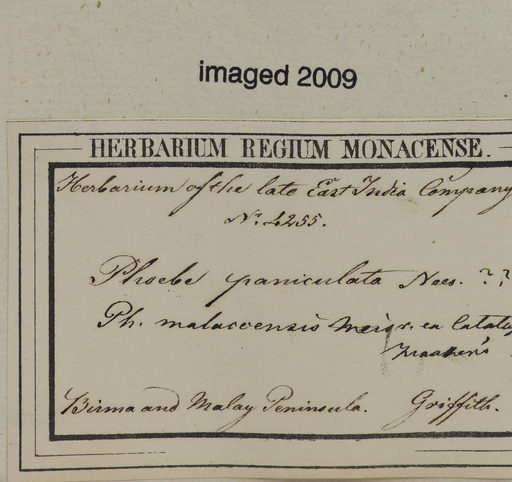 imaged 2009
HERBARIUM REGIUM MONACENSE.
Herbarium of the late East India Company
No. 4255.
Phoebe paniculata Nees. ??
Ph. malaccensis Meisr. ex
Birma and Malay Peninsula. Griffith.